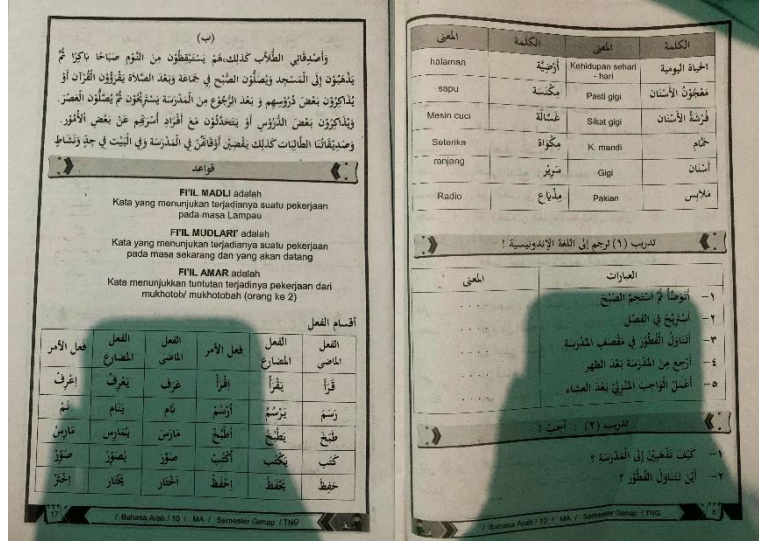 (ب)
وَأَصْدِقَائِي الطُّلَّابُ كَذٰلِكَ، هُمْ يَسْتَيْقِظُوْنَ مِنَ النَّوْمِ صَبَاحًا بَاكِرًا ثُمَّ
يَذْهَبُوْنَ إِلَى الْمَسْجِدِ وَيُصَلُّوْنَ الصُّبْحَ فِي جَمَاعَةٍ وَبَعْدَ الصَّلَاةِ يَقْرَؤُوْنَ الْقُرْآنَ أَوْ
يُذَاكِرُوْنَ بَعْضَ دُرُوْسِهِمْ وَ بَعْدَ الرُّجُوْعِ مِنَ الْمَدْرَسَةِ يَسْتَرِيْحُوْنَ ثُمَّ يُصَلُّوْنَ الْعَصْرَ.
وَيُذَاكِرُوْنَ بَعْضَ الدُّرُوْسِ أَوْ يَتَحَدَّثُوْنَ مَعَ أَفْرَادِ أُسْرَتِهِمْ عَنْ بَعْضِ الْأُمُوْرِ.
وَصَدِيْقَاتُنَا الطَّالِبَاتُ كَذٰلِكَ يَقْضِيْنَ أَوْقَاتَهُنَّ فِي الْمَدْرَسَةِ وَفِي الْبَيْتِ فِي جِدٍّ وَنَشَاطٍ
قواعد
FI'IL MADLI adalah
Kata yang menunjukan terjadianya suatu pekerjaan
pada masa Lampau
FI'IL MUDLARI' adalah
Kata yang menunjukan terjadianya suatu pekerjaan
pada masa sekarang dan yang akan datang
FI'IL AMAR adalah
Kata menunjukkan tuntutan terjadinya pekerjaan dari
mukhotob/ mukhotobah (orang ke 2)
أقسام الفعل
الفعل الماضى الفعل المضارع فعل الأمر الفعل الماضى الفعل المضارع فعل الأمر
قَرَأَ يَقْرَأُ اِقْرَأْ عَرَفَ يَعْرِفُ اِعْرِفْ
رَسَمَ يَرْسُمُ أُرْسُمْ نَامَ يَنَام نَمْ
طَبَخَ يَطْبُخُ أُطْبُخْ مَارَسَ يُمَارِس مَارِسْ
كَتَبَ يَكْتُب أُكْتُبْ صَوَّرَ يُصَوِّرُ صَوِّرْ
حَفِظَ يَحْفَظُ اِحْفَظْ اخْتَار يَخْتَار اِخْتَرْ
17 / Bahasa Arab / 10 / MA / Semester Genap / TNG
الكلمة المعنى الكلمة المعنى
الحياة اليومية Kehidupan sehari - hari أَرْضِيَّة halaman
مَعْجُوْنُ الأَسْنَان Pasti gigi مِكْنَسَة sapu
فُرْشَةُ الأَسْنَان Sikat gigi غَسَّالَة Mesin cuci
حَمَّام K. mandi مِكْوَاة Seterika
أَسْنَان Gigi سَرِيْر ranjang
مَلَابِس Pakian مِذْيَاع Radio
تدريب (١) ترجم إلى اللغة الإندونيسية !
العبارات المعنى
١- أَتَوَضَّأُ ثُمَّ أَسْتَحِمُّ الصُّبْحَ
٢- أَسْتَرِيْحُ فِي الفَصْل
٣- أَتَنَاوَلُ الْفُطُوْرَ فِي مَقْصَفِ الْمَدْرَسَةِ
٤- أَرْجِعُ مِنَ الْمَدْرَسَةِ بَعْدَ الظهر
٥- أَعْمَلُ الْوَاجِبَ الْمَنْزِلِيَّ بَعْدَ العشاء
تدريب (٢) : أجب !
١- كَيْفَ تَذْهَبِيْنَ إِلَى الْمَدْرَسَةِ ؟
٢- أَيْنَ تَتَنَاوَلُ الفُطُوْر ؟
/ Bahasa Arab / 10 / MA / Semester Genap / TNG